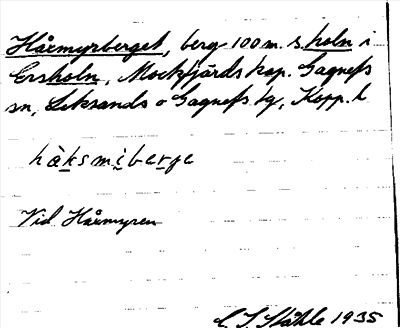 Hårmyrberget, berg 100 m. s. holn i
Ersholn, Mockfjärds kap. Gagnefs
sn, Leksands o Gagnefs tg, Kopp. l
hàksmiberge
Vid Hårmyren
C. I. Ståhle 1935